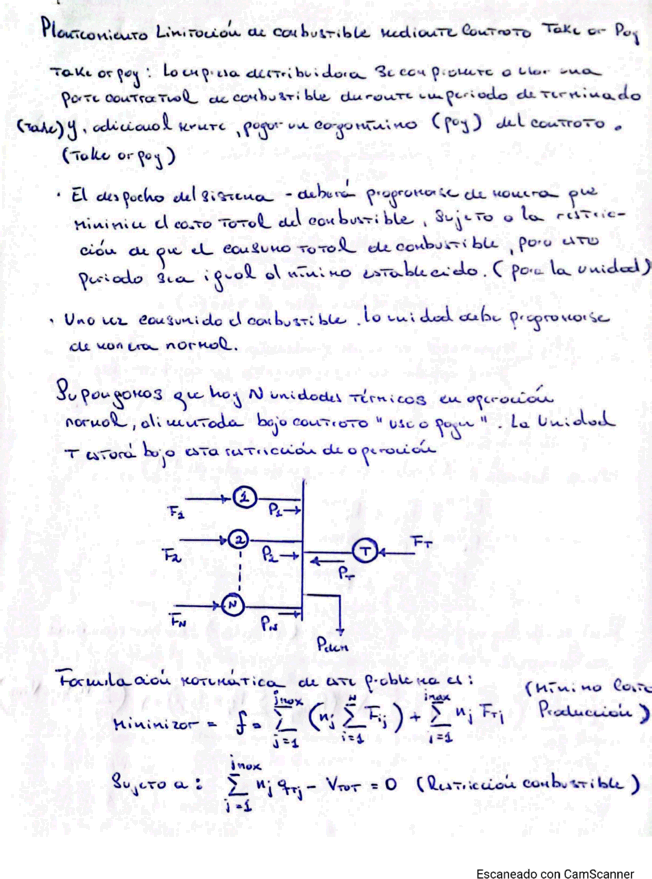 Planteamiento Limitación de combustible mediante Contrato Take or Pay
Take or pay: La empresa distribuidora se compromete a usar una
parte contractual de combustible durante un periodo determinado
(take) y, adicionalmente, pagar un cargo mínimo (pay) del contrato.
(Take or pay)
· El despacho del sistema - deberá programarse de manera que
minimice el costo total del combustible, sujeto a la restric-
ción de que el consumo total de combustible, para este
periodo sea igual al mínimo establecido. (para la unidad)
· Una vez consumido el combustible. la unidad debe programarse
de manera normal.
Supongamos que hay N unidades térmicas en operación
normal, alimentada bajo contrato "use o pague". La Unidad
T estará bajo esta restricción de operación
F1 1 P1
F2 2 P2 T FT
PT
FN N PN
Pdem
Formulación matemática de este problema es: (mínimo Costo
Minimizar = f = ∑_{j=1}^{jmax} (nj ∑_{i=1}^{N} Fij) + ∑_{j=1}^{jmax} nj FTj Producción)
Sujeto a: ∑_{j=1}^{jmax} nj qTj - VTOT = 0 (Restricción combustible)
Escaneado con CamScanner